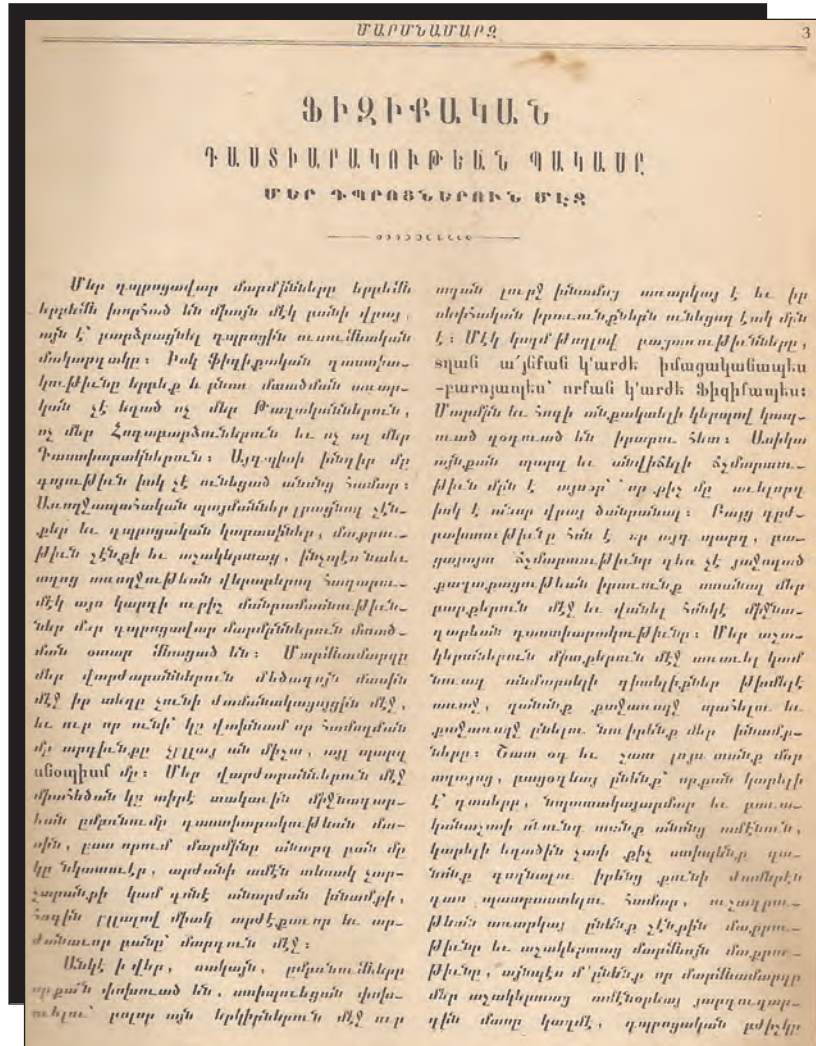 ՄԱՐՄՆԱՄԱՐԶ
3
ՖԻԶԻՔԱԿԱՆ
ԴԱՍՏԻԱՐԱԿՈՒԹԵԱՆ ՊԱԿԱՍԸ
ՄԵՐ ԴՊՐՈՑՆԵՐՈՒՆ ՄԷՋ
Մեր դպրոցավար մարմինները երբեմն
երբեմն խորհած են միայն մէկ բանի վրայ,
այն է՝ բարձրացնել դպրոցին ուսումնական
մակարդակը։ Իսկ ֆիզիքական դաստիա-
կութիւնը երբեք լ մտածման առար-
կան չէ եղած ոչ մեր Թաղականներուն,
ոչ մեր Հոգաբարձուներուն եւ ոչ ալ մեր
Դաստիարակներուն։ Այդպիսի խնդիր մը
գոյութիւն իսկ չէ ունեցած անոնց համար։
Առողջապահական պայմաններ լրացնող շէն-
քեր եւ դպրոցական կարասիներ, մաքրու-
թիւն շէնքի եւ աշակերտաց, ինչպէս նաեւ
առողջութեան վերաբերող հաղարու-
մէկ այս կարգի ուրիշ մանրամասնութիւն-
ներ մեր դպրոցավար մարմիններուն մտած-
ման օտար մնացած են։ Մարմնամարզը
մեր վարժարաններուն մեծագոյն մասին
մէջ իր տեղը չունի ժամանակացոյցին մէջ,
եւ ուր որ ունի՝ կը վախնամ որ համոզման
մը արդիւնքը չըլլայ ան միշտ, այլ պարզ
սնօպիսմ մը։ Մեր վարժարաններուն մէջ
միահեծան կը տիրէ տակաւին միջնադար-
եան ըմբռնումը դաստիարակութեան մա-
սին, ըստ որում մարմինը անարգ բան մը
կը նկատուէր, արժանի ամէն տեսակ չար-
չարանքի կամ գոնէ անարժան խնամքի,
հոգին ըլլալով միակ արժէքաւոր եւ ար-
ժանաւոր բանը՝ մարդուն մէջ։
Անկէ ի վեր, սակայն, ըմբռնումները
որքա՜ն փոխուած են, ստիպուեցան փոխ-
ուելու՝ բոլոր այն երկիրներուն մէջ ուր
տղան լուրջ խնամքի առարկայ է եւ իր
սեփական իրաւունքներն ունեցող էակ մըն
է։ Մէկ կողմ թողլով բացառութիւնները,
տղան ա՛յնքան կ'արժե իմացականապես
-բարոյապես՝ որքան կ'արժե Ֆիզիքապես։
Մարմին եւ հոգի անքակտելի կերպով կապ-
ուած զօդուած են իրարու հետ։ Ասիկա
այնքան պարզ եւ անվիճելի ճշմարտու-
թիւն մըն է այսօր՝ որ քիչ մը աւելորդ
իսկ է ասոր վրայ ծանրանալ։ Բայց դըժ-
բախտութիւնը հոն է որ այդ պարզ, բա-
ցայայտ ճշմարտութիւնը դեռ չէ յաջողած
քաղաքացութեան իրաւունք ստանալ մեր
բարքերուն մէջ եւ վանել հոնկէ միջնա-
դարեան դաստիարակութիւնը։ Մեր աշա-
կերտներուն միտքերուն մէջ առաւել կամ
նուազ անմարսելի գիտելիքներ թխմելէ
առաջ, զանոնք քաջառողջ պահելու եւ
քաջառողջ ընելու նուիրենք մեր խնամք-
ները։ Շատ օդ եւ շատ լոյս տանք մեր
տղայոց, բացօդեայ ընենք՝ որքան կարելի
է՝ դասերը, նպատակայարմար եւ բաւա-
կանաչափ սնունդ տանք անոնց ամէնուն,
կարելի եղածին չափ քիչ ստիպենք զա-
նոնք գոզնալու իրենց քունի ժամերէն
դաս պատրաստելու համար, ուշադրու-
թեան առարկայ ընենք շէնքին մաքրու-
թիւնը եւ աշակերտաց մարմնոյն մաքրու-
թիւնը, այնպէս մ'ընենք որ մարմնամարզը
մեր աշակերտաց ամէնօրեայ յարդուզար-
դին մասը կազմէ, դպրոցական բժիշկը